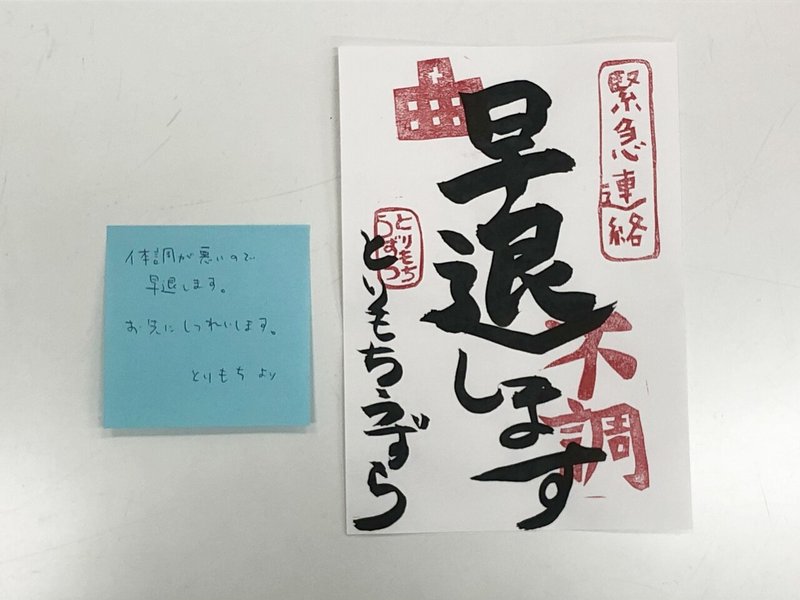 体調が悪いので
早退します。
お先にしつれいします。
とりもち より
緊急連絡
早退します
不調
とりもち
うずら
とりもちうずら